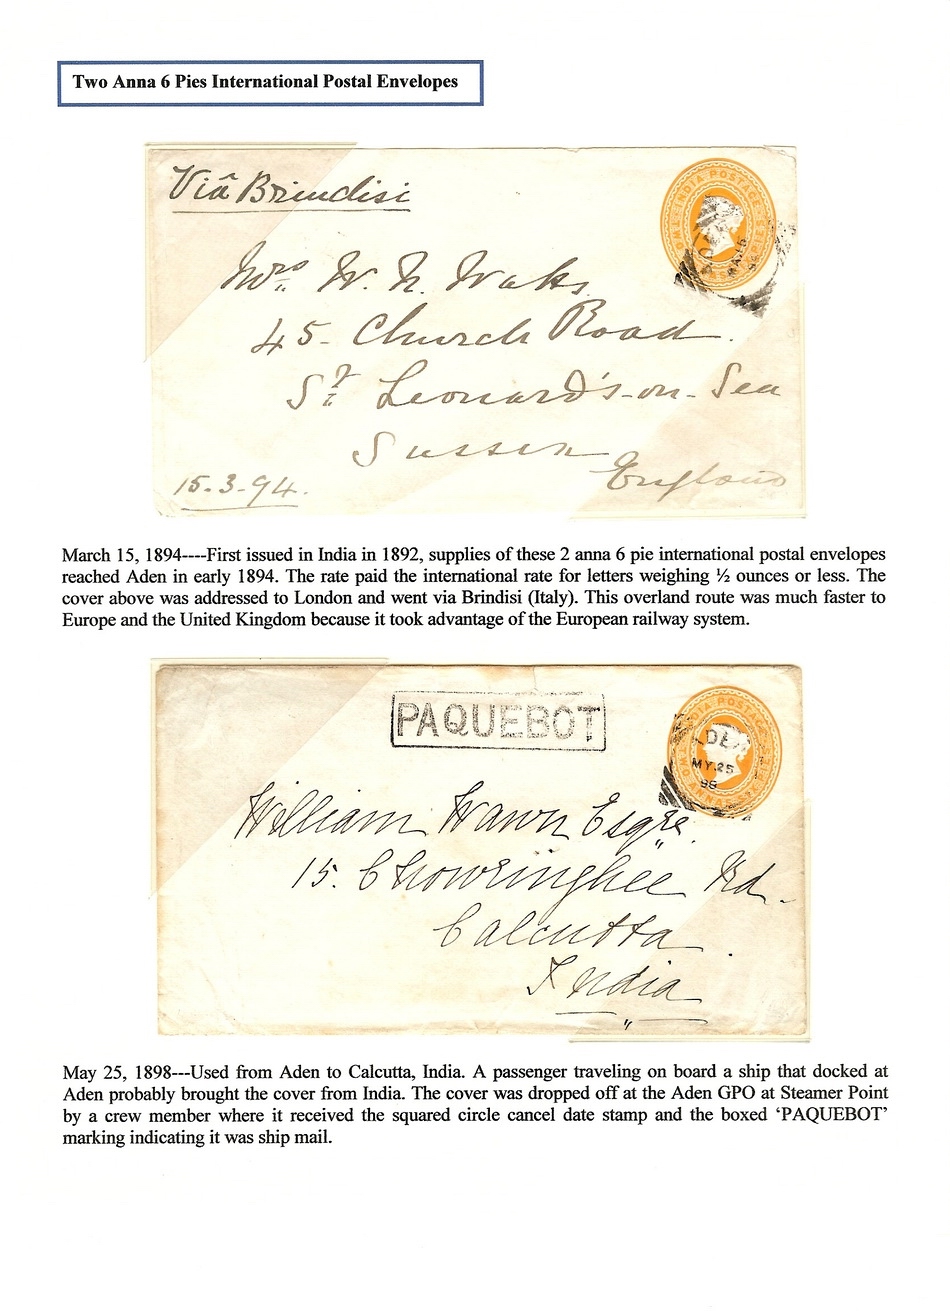 Two Anna 6 Pies International Postal Envelopes
Viâ Brindisi
INDIA POSTAGE
Mrs. W. N. Waks.
45- Church Road.
St. Leonard's-on-Sea
Sussex
England
15.3.94.
March 15, 1894----First issued in India in 1892, supplies of these 2 anna 6 pie international postal envelopes
reached Aden in early 1894. The rate paid the international rate for letters weighing ½ ounces or less. The
cover above was addressed to London and went via Brindisi (Italy). This overland route was much faster to
Europe and the United Kingdom because it took advantage of the European railway system.
PAQUEBOT
POSTAGE
MY.25
98
William Wawn Esqre.
15. Chowringhee Rd.
Calcutta
India
May 25, 1898---Used from Aden to Calcutta, India. A passenger traveling on board a ship that docked at
Aden probably brought the cover from India. The cover was dropped off at the Aden GPO at Steamer Point
by a crew member where it received the squared circle cancel date stamp and the boxed ‘PAQUEBOT’
marking indicating it was ship mail.